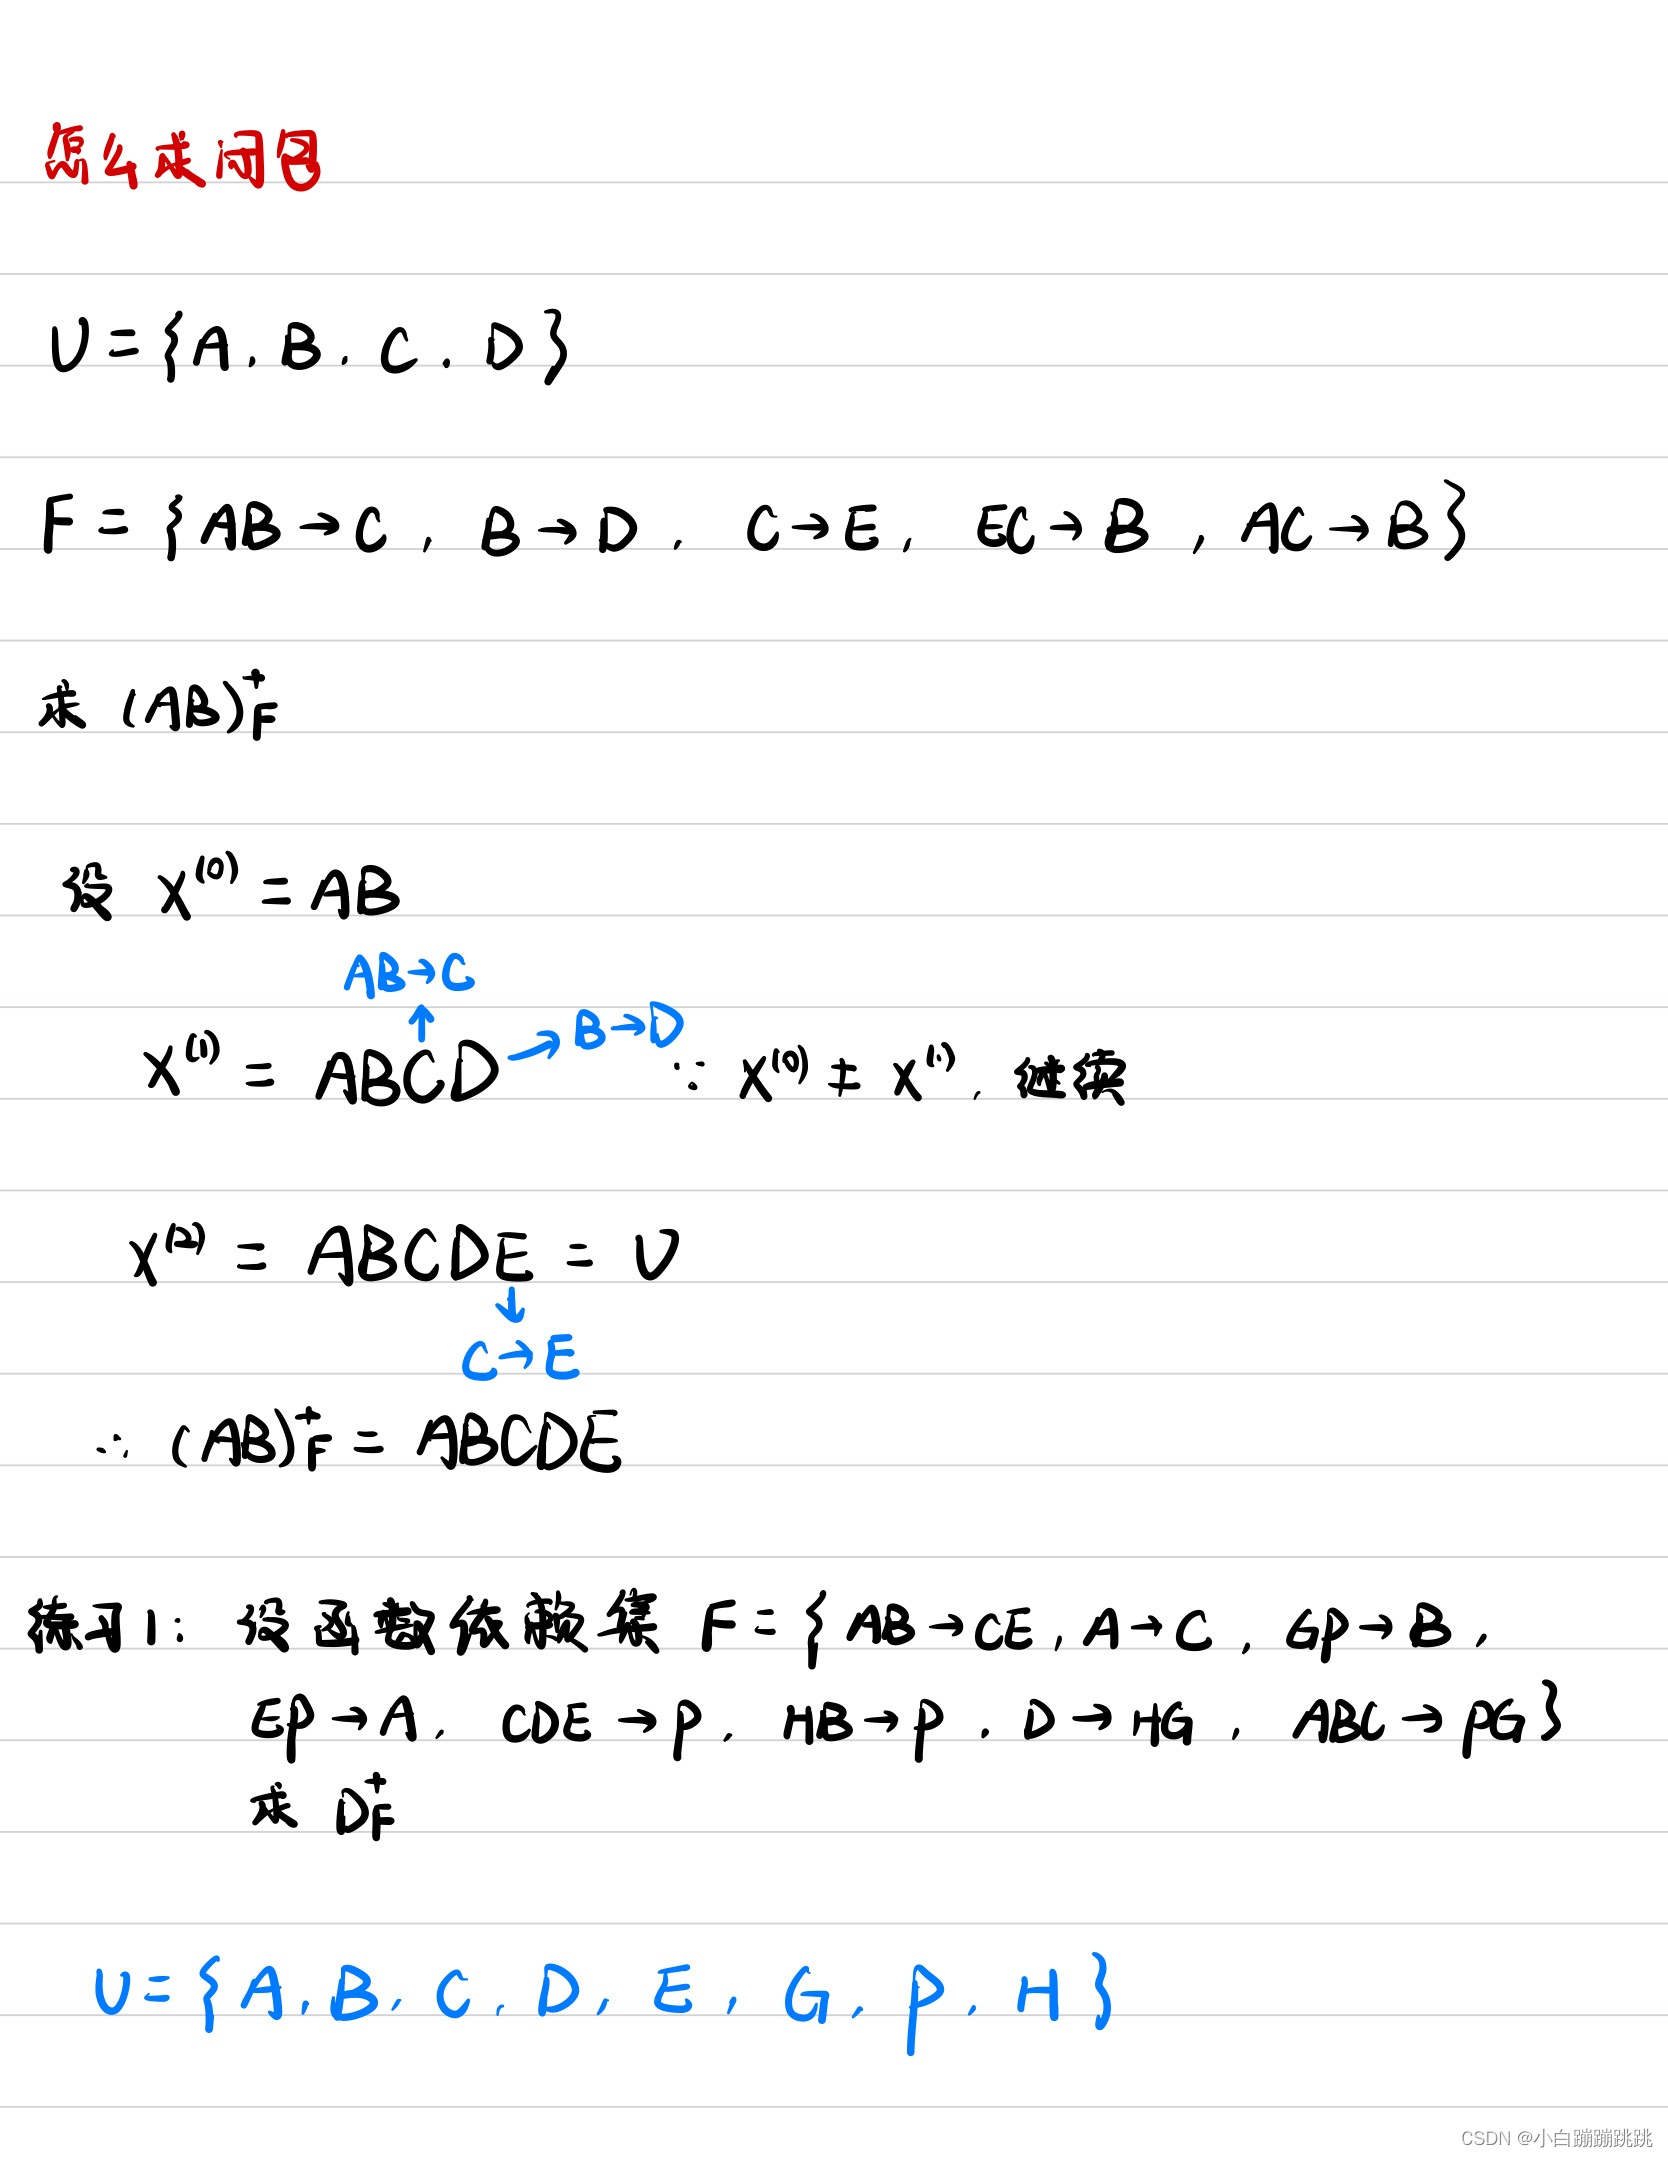 怎么求闭包
U={A,B,C,D}
F={AB→C,B→D,C→E,EC→B,AC→B}
求 (AB)⁺F
设 X⁽⁰⁾=AB
AB→C
↑
X⁽¹⁾=ABCD→B→D ∵X⁽⁰⁾≠X⁽¹⁾,继续
X⁽²⁾=ABCDE=U
↓
C→E
∴(AB)⁺F=ABCDE
练习1: 设函数依赖集 F={AB→CE,A→C,GP→B,
EP→A,CDE→P,HB→P,D→HG,ABC→PG}
求 D⁺F
U={A,B,C,D,E,G,P,H}
CSDN @小白蹦蹦跳跳